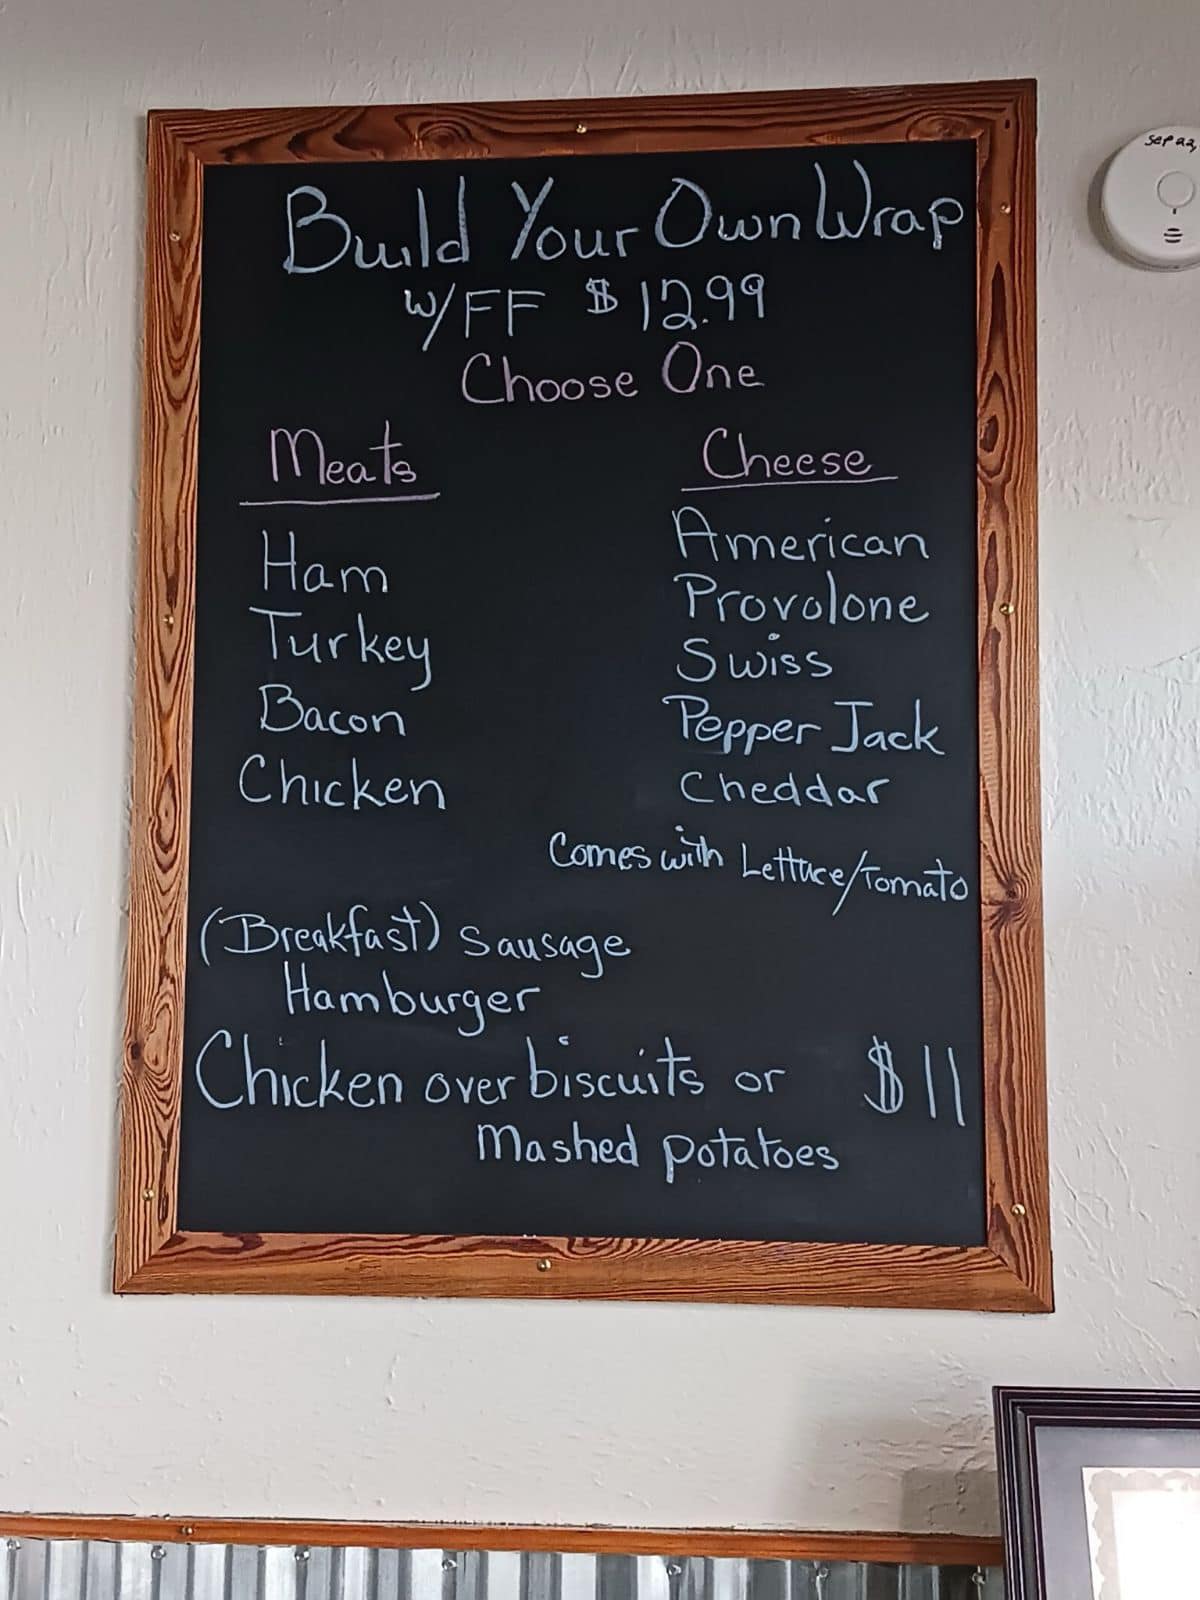 Build Your Own Wrap
W/FF $12.99
Choose One
Meats
Ham
Turkey
Bacon
Chicken
Cheese
American
Provolone
Swiss
Pepper Jack
Cheddar
Comes with Lettuce/Tomato
(Breakfast) Sausage
Hamburger
Chicken over biscuits or $11
Mashed potatoes
Sep 22,